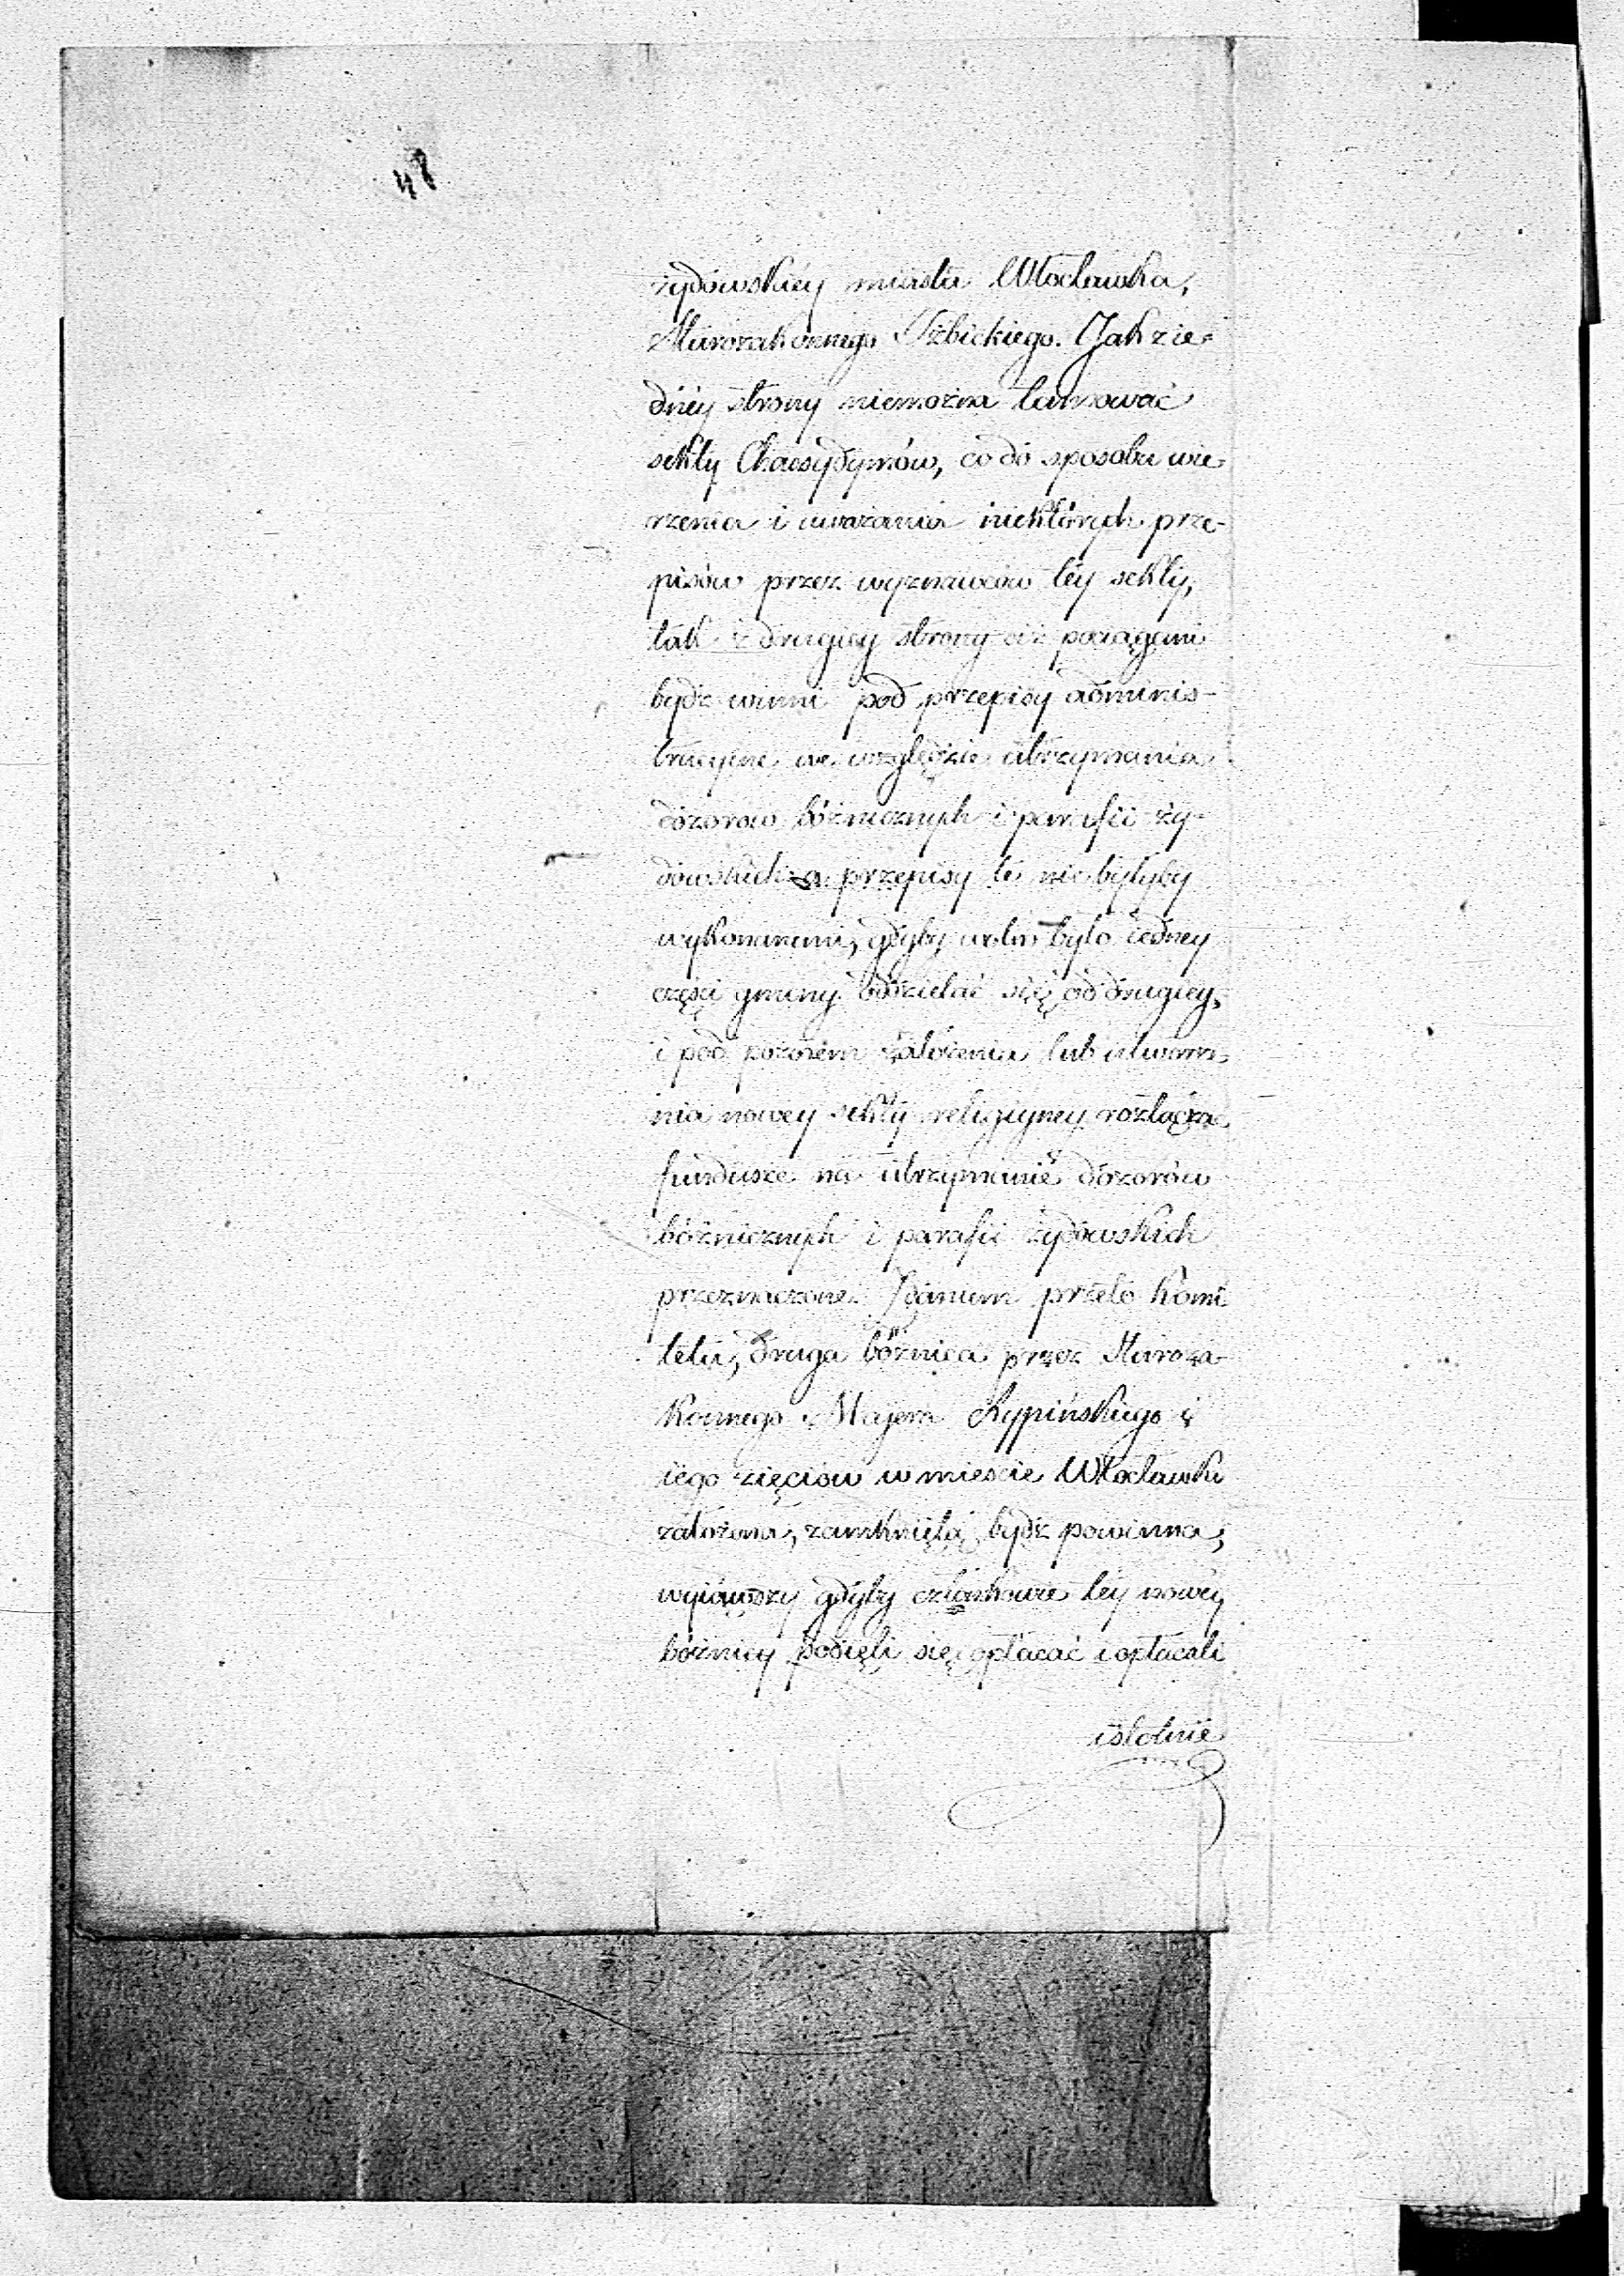 48
żydowskiéy miasta Włocławka,
Starozakonnego Izbickiego. Jak zie-
dnéy strony niemożna tamować
sekty Chassydymów, co do sposobu wie-
rzenia i uważania niektórych prze-
pisów przez wyznawców téy sekty,
tak z drugiey strony ciż pociągani
bydź winni pod przepisy adminis-
tracyine we względzie utrzymania
dozorów bóżnicznych i parafii ży-
dowskich a przepisy te nie byłyby
wykonanemi, gdyby wolno było iedney
części gminy oddzielać się od drugiey,
i pod pozorem założenia lub utworze-
nia nowey sekty religiyney rozłącza
fundusze na utrzymanie dozorów
bóżnicznych i parafii żydowskich
przeznaczone. Zdaniem przeto Komi-
tetu, druga bóżnica przez Staroza-
konnego Majera Rypińskiego i
iego zięciów w mieście Włocławku
założona, zamkniętą bydź powinna,
wyiąwszy gdyby członkowie téy nowéy
bóżnicy podięli się opłacać i opłacali
istotnie